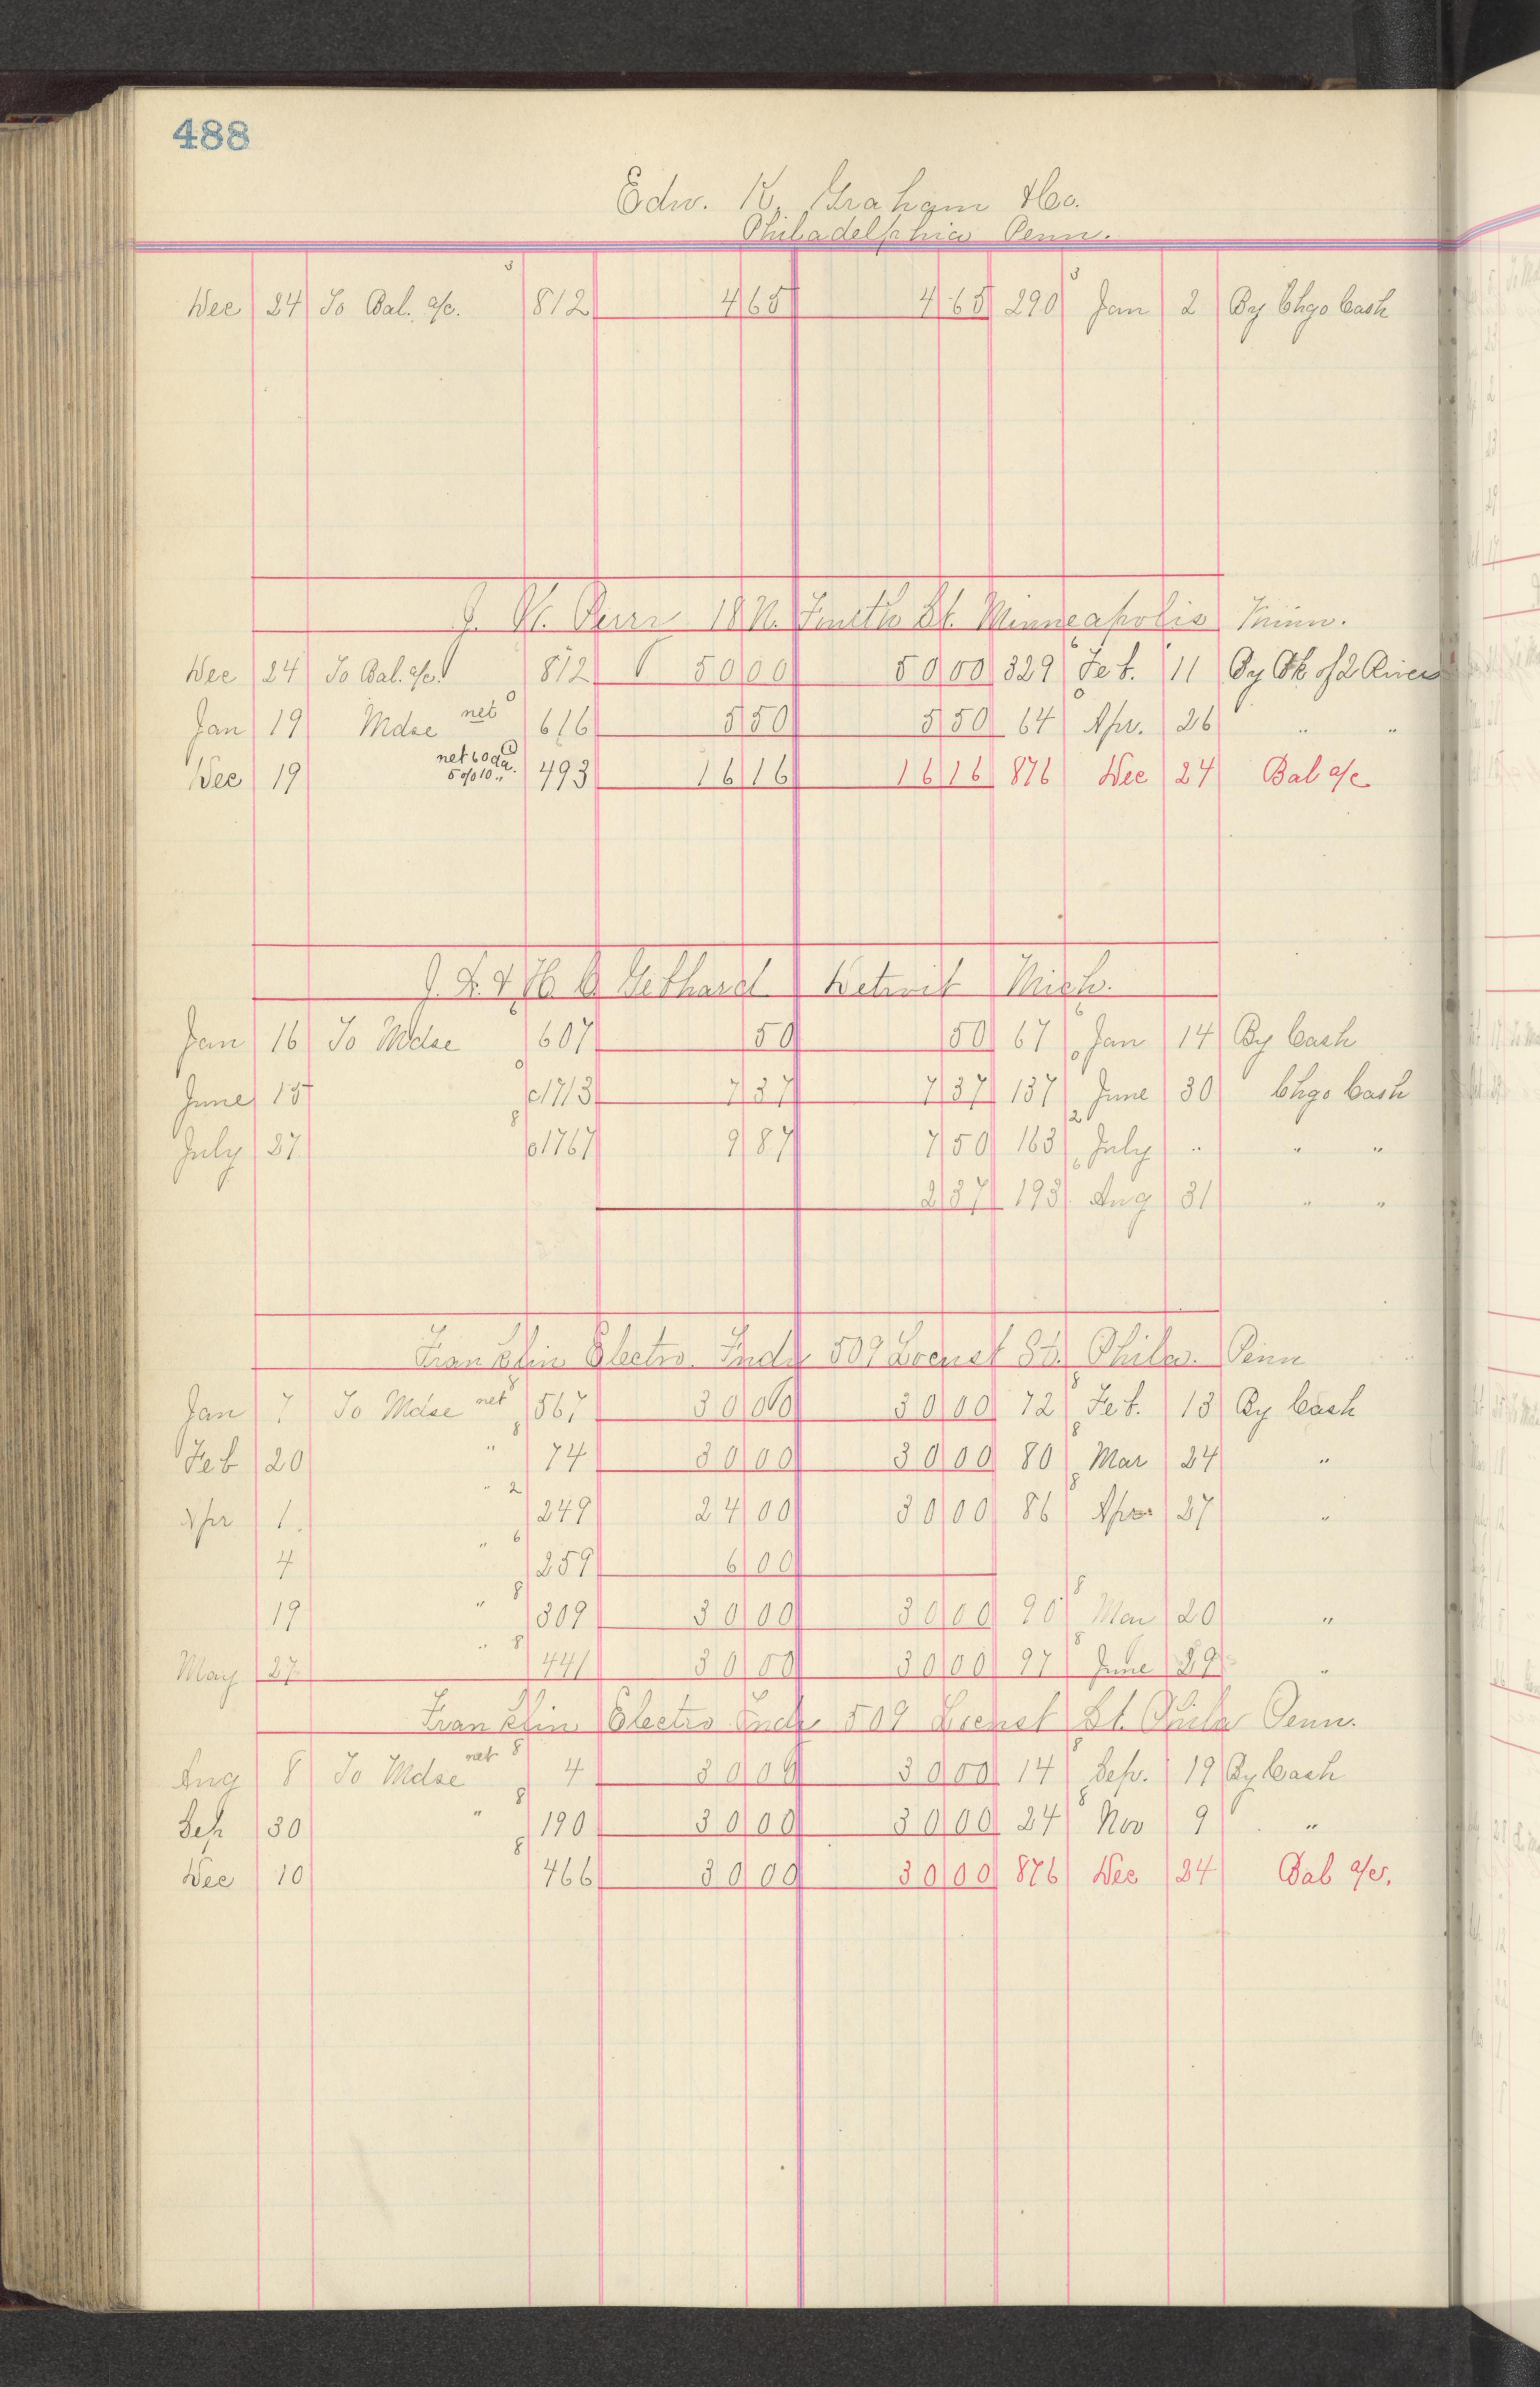 488
Edw. K. Graham & Co.
Philadelphia Penn.
Dec 24 To Bal. a/c. 812 4 65 4 65 290 Jan 2 By Chgo Cash
J. W. 18 N. St. Minneapolis Minn.
Dec 24 To Bal. a/c. 812 50 00 50 00 329 Feb. 11 By Bk of 2 Rivers
Jan 19 Mdse net 616 5 50 5 50 64 Apr. 26 " "
Dec 19 net 60 da. 5 % 10 " 493 16 16 16 16 876 Dec 24 Bal a/c
Gebhard Detroit Mich.
Jan 16 To Mdse 607 50 50 67 Jan 14 By Cash
June 15 c1713 7 37 7 37 137 June 30 Chgo Cash
July 27 c1767 9 87 7 50 163 July " " "
2 37 193 Aug 31 " "
Franklin Electro. Indy 509 Locust St. Phila. Penn
Jan 7 To Mdse net 8 567 30 00 30 00 72 8 Feb. 13 By Cash
Feb 20 " 8 74 30 00 30 00 80 8 Mar 24 "
Apr 1. " 2 249 24 00 30 00 86 8 Apr 27 "
4 " 6 259 6 00
19 " 8 309 30 00 30 00 90 8 May 20 "
May 27 " 8 441 30 00 30 00 97 8 June 29 "
Franklin Electro Indy 509 Locust St. Phila Penn.
Aug 8 To Mdse net 8 4 30 00 30 00 14 8 Sep. 19 By Cash
Sep 30 " 8 190 30 00 30 00 24 8 Nov 9 "
Dec 10 8 466 30 00 30 00 876 Dec 24 Bal a/c.